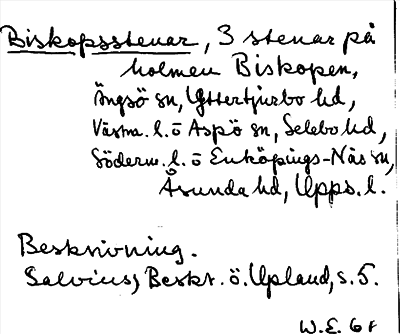 Biskopsstenar, 3 stenar på
holmen Biskopen,
Ängsö sn, Yttertjurbo hd,
Västm. l. o Aspö sn, Selebo hd,
Söderm. l. o Enköpings-Näs sn,
Åsunda hd, Upps. l.
Beskrivning.
Salvius, Beskr. ö. Upland, s. 5.
W.E. 6